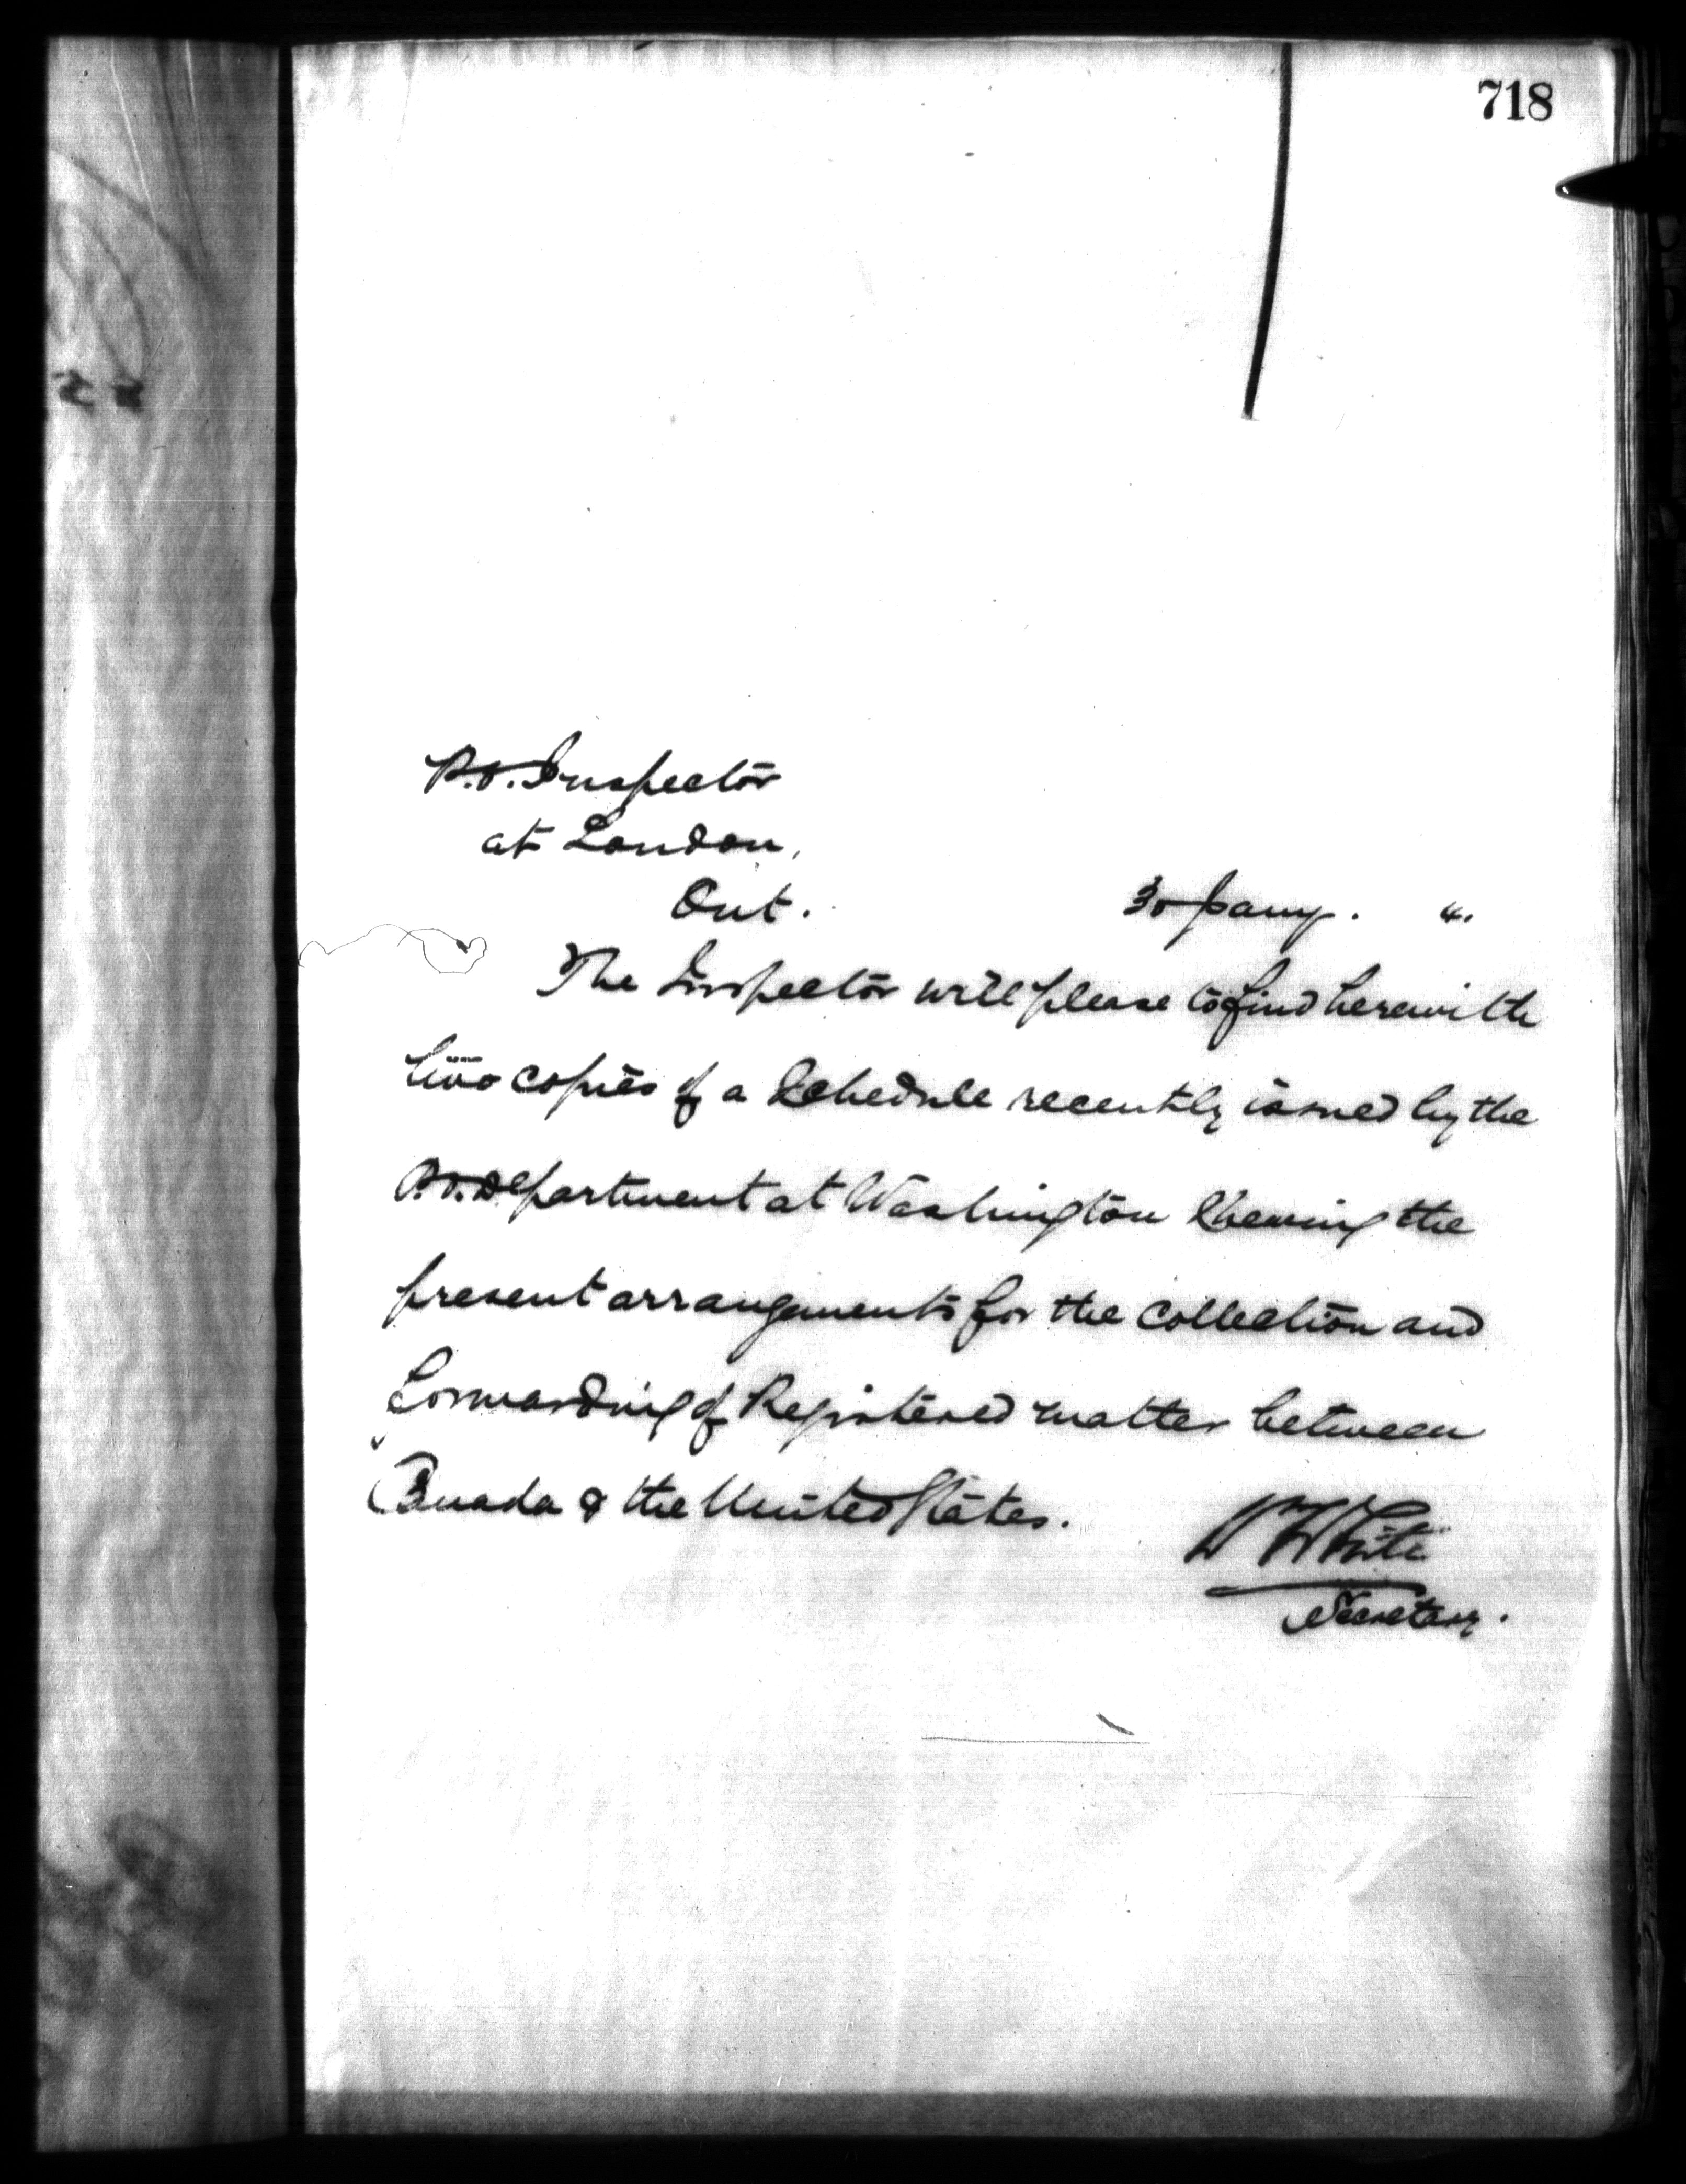 718
P.O. Inspector
at London,
Ont.
30 Jany.
The Inspector will please to find herewith
two copies of a Schedule recently issued by the
P.O. Department at Washington Shewing the
present arrangements for the collection and
forwarding of Registered matter between
Canada & the United States.
W White
Secretary.